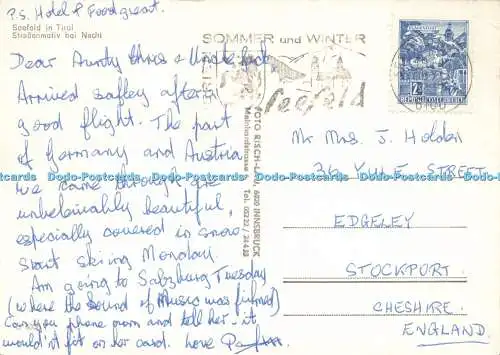 P.S. Hotel & Food great.
Seefeld in Tirol
Straßenmotiv bei Nacht
Dear Aunty Chris & Uncle Jack
Arrived safley after
good flight. The part
of Germany and Austria
we came through are
unbeleivably beautiful,
especially covered in snow
Start skiing Monday.
Am going to Salzburg Tuesday
(where the Sound of Music was filmed)
Can you phone mom and tell her - it
wouldn't fit on her card. Love
SOMMER und WINTER
Seefeld
6100
2S
REPUBLIK ÖSTERREICH
FOTO RISCH-LAU, 6020 INNSBRUCK
Tel. 05222 / 24428
Mr Mrs J. Holden
36 YULE STREET
EDGELEY
STOCKPORT
CHESHIRE
ENGLAND
Dodo-Postcards Dodo-Postcards Dodo-Postcards Dodo-Postcards